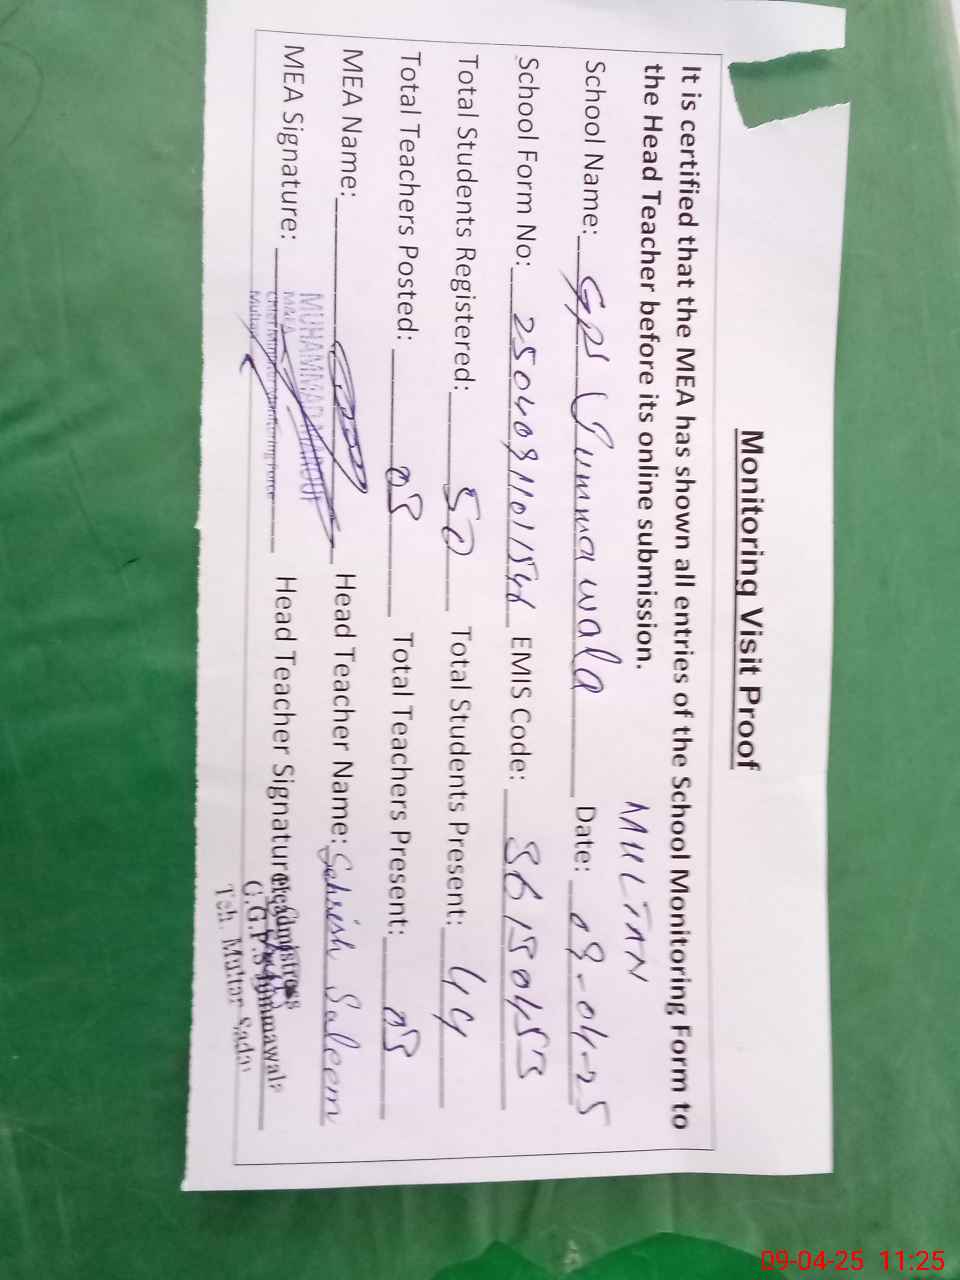 Monitoring Visit Proof
It is certified that the MEA has shown all entries of the School Monitoring Form to
the Head Teacher before its online submission.
MULTAN
School Name: GPS Jummawala Date: 09-04-25
School Form No: EMIS Code:
Total Students Registered: 50 Total Students Present: 44
Total Teachers Posted: 03 Total Teachers Present: 03
MEA Name: Head Teacher Name: Sehrish Saleem
MEA Signature: Head Teacher Signature:
MUHAMMAD MAROOF
MEA
Multan
Headmistress
G.G.P.S Jummawala
Teh. Multan Sadar
09-04-25 11:25